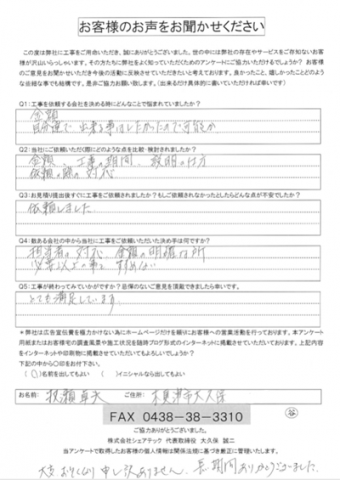 お客様のお声をお聞かせください
この度は弊社に工事をご用命いただき、誠にありがとうございました。世の中には弊社の存在やサービスをご存知ないお客
様が沢山いらっしゃいます。その方たちに弊社をよく知っていただくためのアンケートにご協力いただけるでしょうか？ お客様
のご意見をお聞かせいただき今後の活動に反映させていただきたいと考えております。良かったこと、嬉しかったことどのよう
な些細な事でも結構です。是非ご協力お願い致します。（出来るだけ具体的に書いていただければ幸いです）
Q1：工事を依頼する会社を決める時にどんなことで悩まれていましたか？
金額
自分達で出来る事はしたかったので可能か
Q2：当社にご依頼いただく際にどのような点を比較・検討されましたか？
金額、工事の期間、説明の仕方
依頼の際の対応
Q3：お見積り提出後すぐに工事をご依頼されましたか？もしご依頼されなかったとしたらどんな点が不安でしたか？
依頼しました
Q4：数ある会社の中から当社に工事をご依頼いただいた決め手は何ですか？
担当者の対応、金額の明確な所
必要以上の事を勧めない
Q5：工事が終わってみていかがですか？忌憚のないご意見を頂戴できましたら幸いです。
とても満足しています
＊弊社は広告宣伝費を極力かけない為にホームページだけを頼りにお客様への営業活動を行っております。本アンケート
用紙またはお客様宅の調査風景や施工状況を随時ブログ形式のインターネットに掲載させていただいております。上記内容
をインターネットや印刷物に掲載させていただいてもよろしいでしょうか？
下記の中から〇印をお付け下さい。
（〇）名前を出してもよい （ ）イニシャルなら出してもよい
お名前： 卓夫 ご住所： 木更津市大久保
FAX 0438-38-3310
ご協力ありがとうございました。
株式会社シェアテック 代表取締役 大久保 誠二
当アンケートで取得したお客様の個人情報は関係法規に基づき厳正に管理いたします。
大変おそくなり申し訳ありません。長期間ありがとうございました。